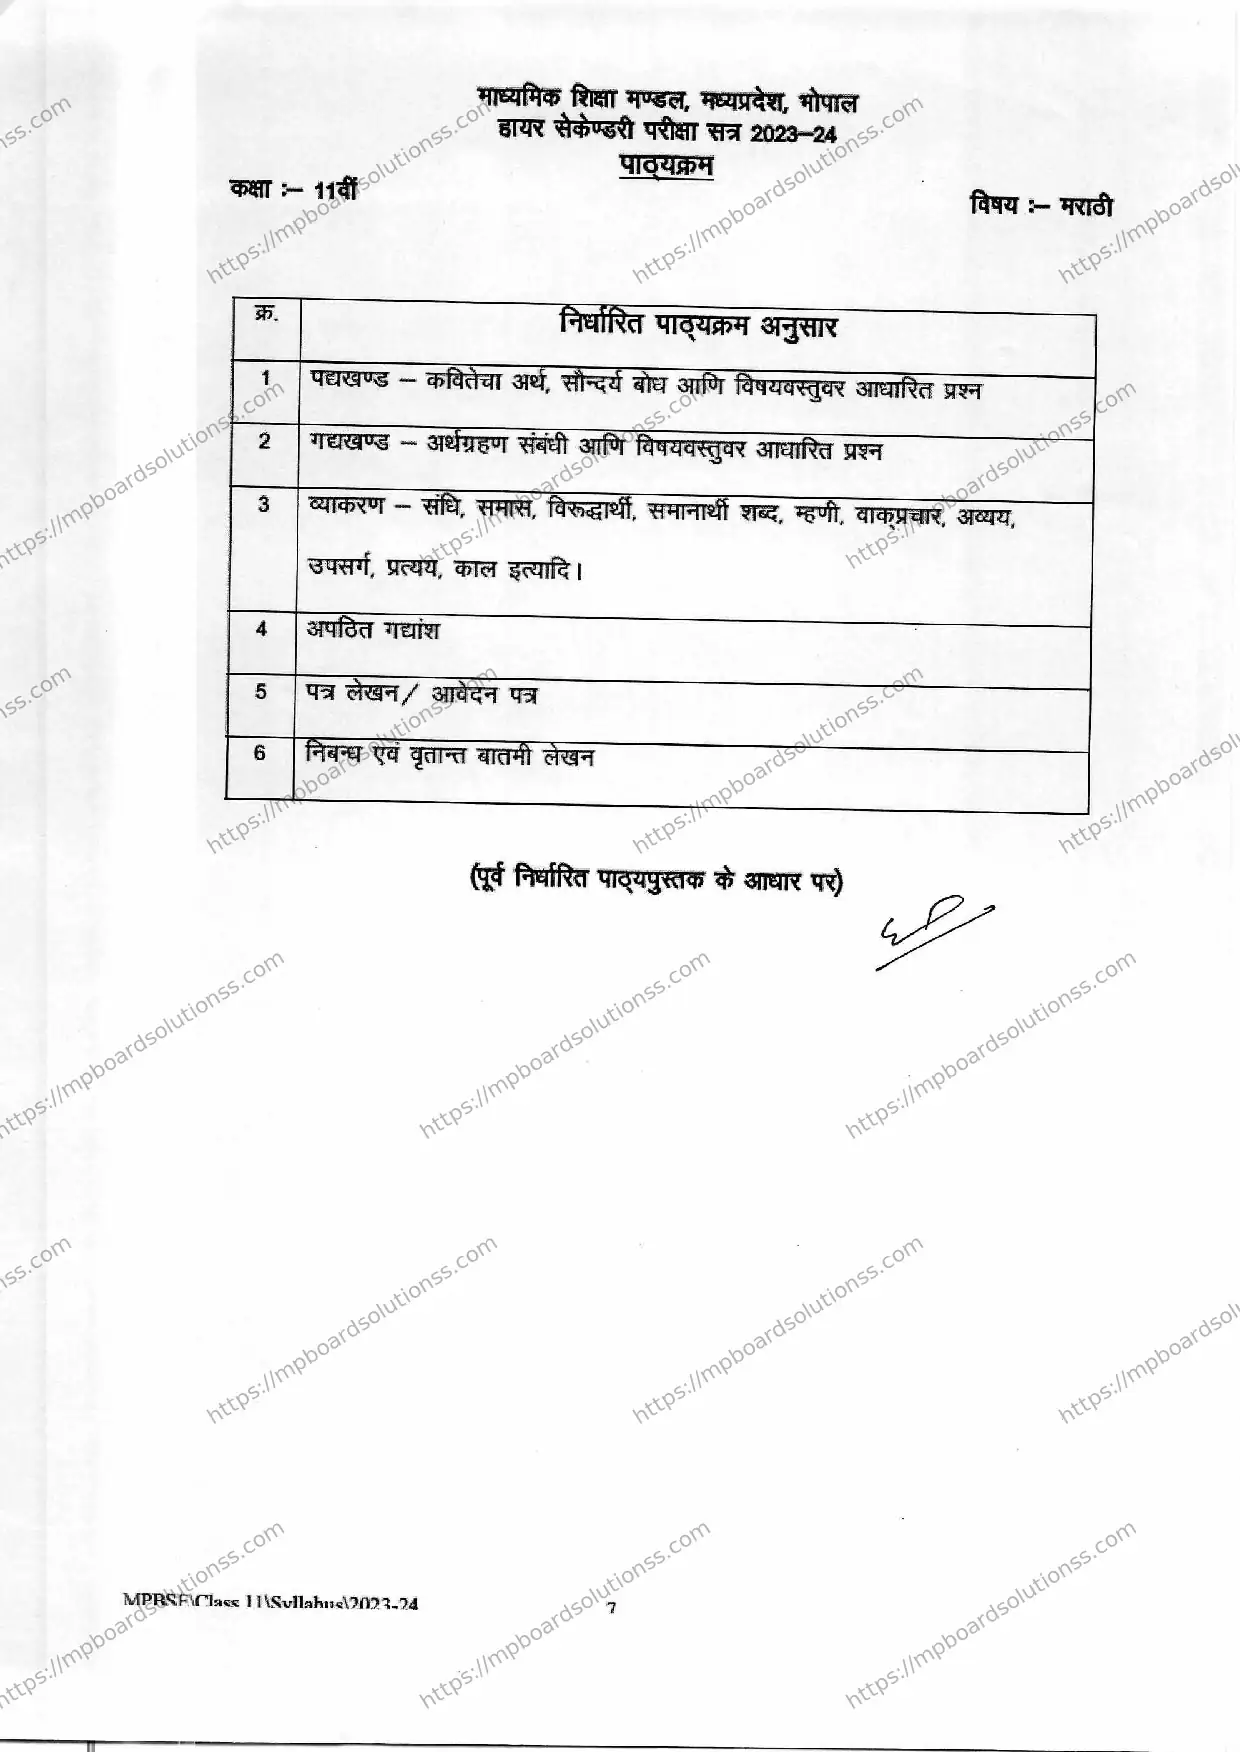 माध्यमिक शिक्षा मण्डल, मध्यप्रदेश, भोपाल
हायर सेकेण्डरी परीक्षा सत्र 2023–24
पाठ्यक्रम
कक्षा :– 11वीं
विषय :– मराठी
क्र. निर्धारित पाठ्यक्रम अनुसार
1 पद्यखण्ड – कवितेचा अर्थ, सौन्दर्य बोध आणि विषयवस्तुवर आधारित प्रश्न
2 गद्यखण्ड – अर्थग्रहण संबंधी आणि विषयवस्तुवर आधारित प्रश्न
3 व्याकरण – संधि, समास, विरूद्धार्थी, समानार्थी शब्द, म्हणी, वाक्प्रचार, अव्यय,
उपसर्ग, प्रत्यय, काल इत्यादि।
4 अपठित गद्यांश
5 पत्र लेखन/ आवेदन पत्र
6 निबन्ध एवं वृतान्त बातमी लेखन
(पूर्व निर्धारित पाठ्यपुस्तक के आधार पर)
MPBSE\Class 11\Syllabus\2023-24
7
https://mpboardsolutionss.com